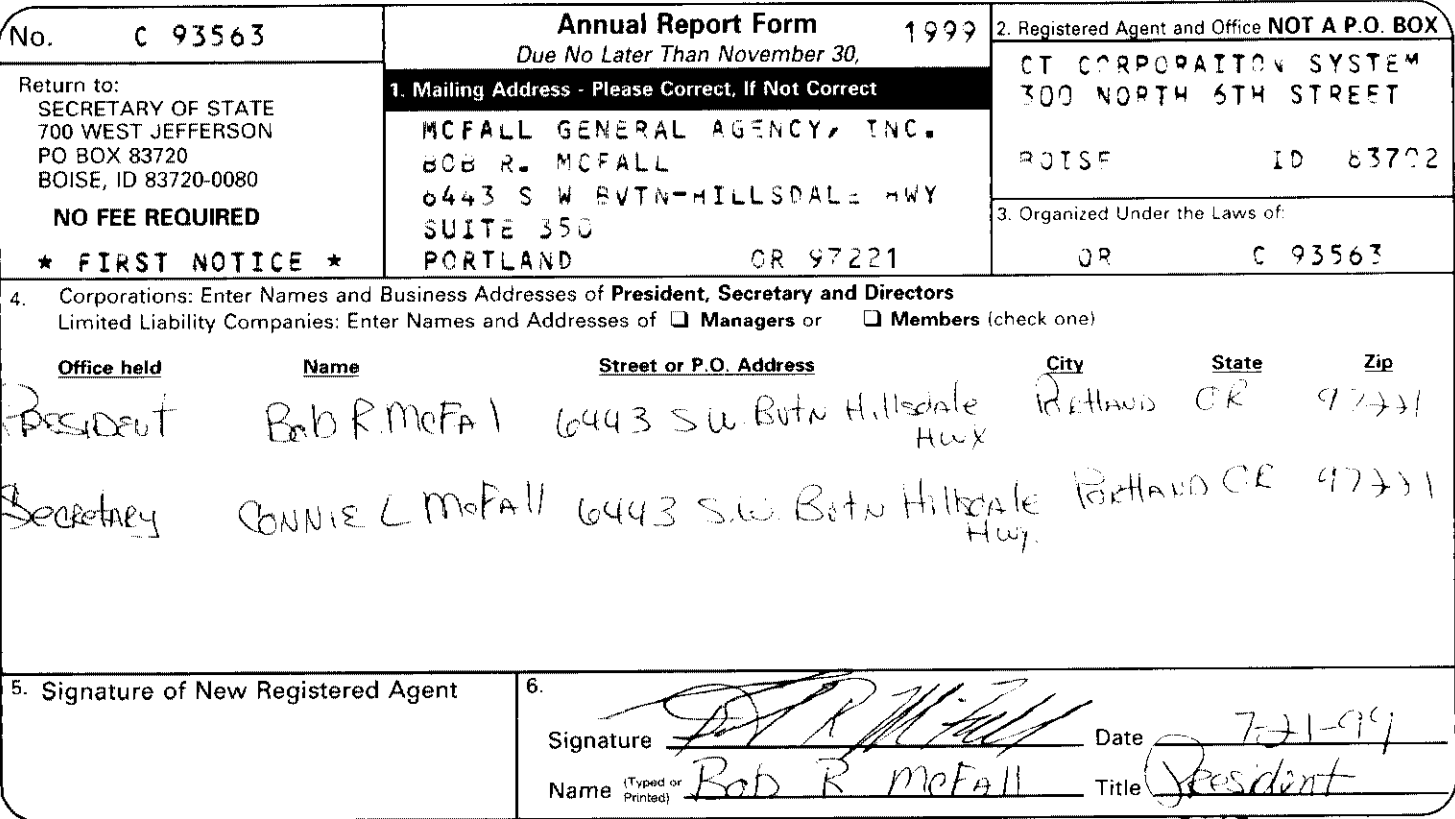 No. C 93563
Annual Report Form 1999
Due No Later Than November 30,
Return to:
SECRETARY OF STATE
700 WEST JEFFERSON
PO BOX 83720
BOISE, ID 83720-0080
NO FEE REQUIRED
* FIRST NOTICE *
1. Mailing Address - Please Correct, If Not Correct
MCFALL GENERAL AGENCY, INC.
BOB R. MCFALL
6443 S W BVTN-HILLSDALE HWY
SUITE 350
PORTLAND OR 97221
2. Registered Agent and Office NOT A P.O. BOX
CT CORPORAITON SYSTEM
300 NORTH 6TH STREET
BOISE ID 83702
3. Organized Under the Laws of:
OR C 93563
4. Corporations: Enter Names and Business Addresses of President, Secretary and Directors
Limited Liability Companies: Enter Names and Addresses of ❑ Managers or ❑ Members (check one)
Office held Name Street or P.O. Address City State Zip
President Bob R. McFall 6443 S.W. Bvtn Hillsdale Portland OR 97221
Hwy
Secretary Connie L McFall 6443 S.W. Bvtn Hillsdale Portland OR 97221
Hwy.
5. Signature of New Registered Agent
6.
Signature Bob R McFall Date 7-21-99
Name (Typed or Printed) Bob R McFall Title President